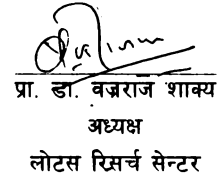 प्रा. डा. वज्रराज शाक्य
अध्यक्ष
लोटस रिसर्च सेन्टर